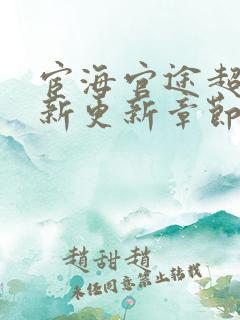 宦海官途超
新更新章節
趙甜趙
未任同意禁止转载